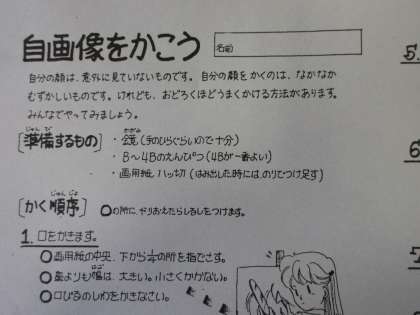 自画像をかこう
名前
自分の顔は、意外に見ていないものです。自分の顔をかくのは、なかなか
むずかしいものです。けれども、おどろくほどうまくかける方法があります。
みんなでやってみましょう。
[準備するもの]
じゅんび
・鏡(手のひらぐらいので十分)
かがみ
・B~4Bのえんぴつ(4Bが一番よい)
・画用紙、ハッ切(はみ出した時には、のりでつけ足す)
[かく順序]
じゅんじょ
○の所に、やりおえたらしるしをつけます。
1. 口をかきます。
○画用紙の中央、下から の所を指でさす。
○鼻よりも幅は、大きい。小さくかかない。
はば
○口びるのしわをかきなさい。
5.
6
7